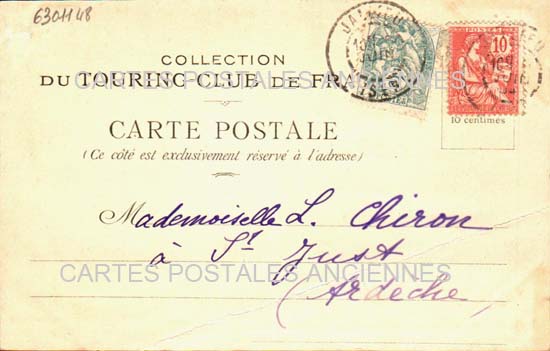 6301148
COLLECTION
DU TOURING-CLUB DE FR
CARTES POSTALES ANCIENNES
CARTE POSTALE
(Ce côté est exclusivement réservé à l'adresse)
JALLIEU
ISÈRE
POSTES
10
10 centimes
Mademoiselle L. Chiron
à St Just
CARTES POSTALES ANCIENNES
(Ardèche)